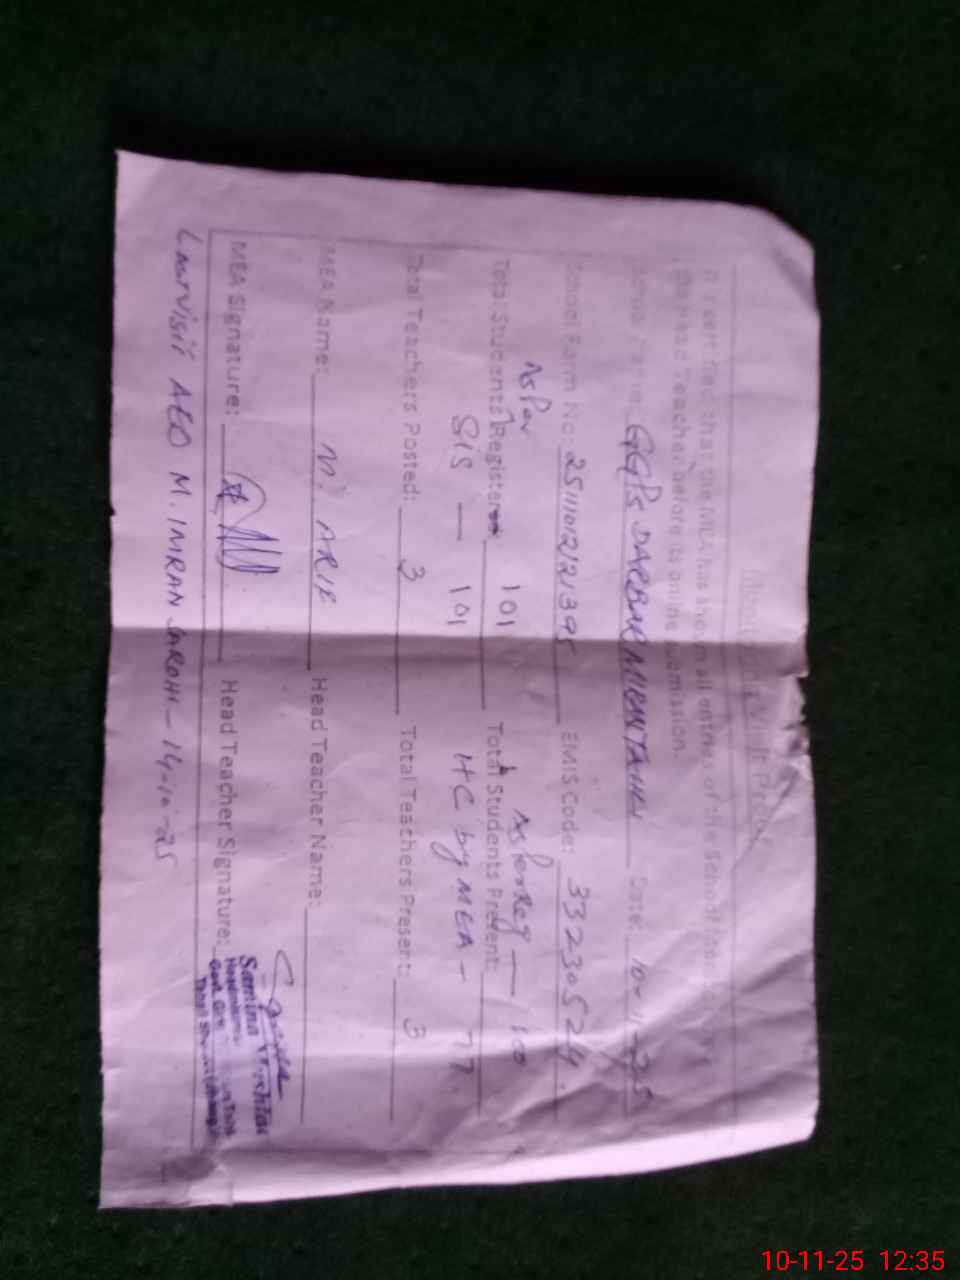 Monitoring Visit Proof
It is certified that the MEA has shown all entries of the School
the Head Teacher before its online submission.
GGPS DARBAR Date: 10-11-25
School Form No: EMIS Code: 33230524
As Per As per Reg — 100
Total Students Registered 101 Total Students Present:
SIS — 101 HC by MEA - 77.
Total Teachers Posted: 3 Total Teachers Present: 3
MEA Name: M. ARIF Head Teacher Name:
MEA Signature: Head Teacher Signature:
Samina
Last Visit AEO M. IMRAN - 14-10-25
10-11-25 12:35